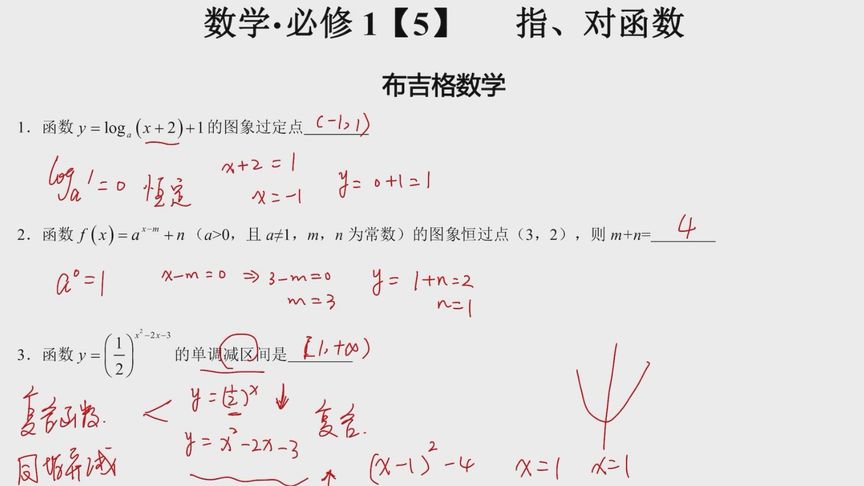 数学·必修 1【5】 指、对函数
布吉格数学
1. 函数 y = logₐ(x+2)+1 的图象过定点 (-1,1)
logₐ1=0 恒定 x+2=1 y=0+1=1
x=-1
2. 函数 f(x)=a^(x-m)+n（a>0，且 a≠1，m，n 为常数）的图象恒过点（3，2），则 m+n= 4
a⁰=1 x-m=0 ⇒ 3-m=0 y=1+n=2
m=3 n=1
3. 函数 y=(1/2)^(x²-2x-3) 的单调减区间是 [1,+∞)
复合函数. < y=(1/2)^x ↓ 复合.
y=x²-2x-3
同增异减 ↑ (x-1)²-4 x=1 x=1